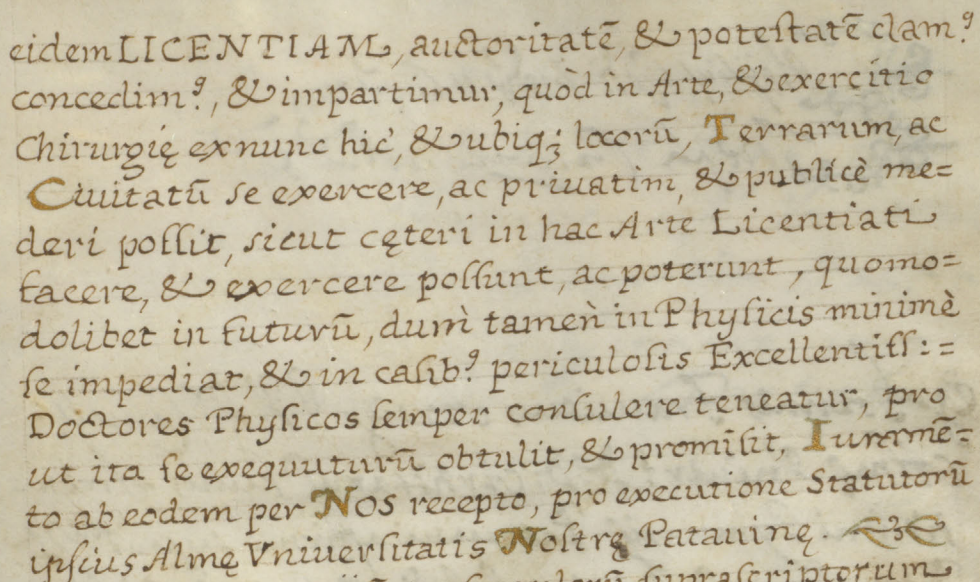 eidem LICENTIAM, auctoritatē, & potestatē clamꝰ
concedimꝰ, & impartimur, quòd in Arte, & exercitio
Chirurgię ex nunc hic, & ubiqꝫ locorū, Terrarum, ac
Ciuitatū se exercere, ac priuatim, & publicè me=
deri possit, sicut cęteri in hac Arte Licentiati
facere, & exercere possunt, ac poterunt, quomo=
dolibet in futurū, dum̀ tameǹ in Physicis minimè
se impediat, & in casibꝰ periculosis Excellentiss: =
Doctores Physicos semper consulere teneatur, pro
ut ita se exequuturū obtulit, & promisit, Iuramē=
to ab eodem per Nos recepto, pro executione Statutorū
ipsius Almę Vniuersitatis Nostrę Patauinę.
suprascriptorum